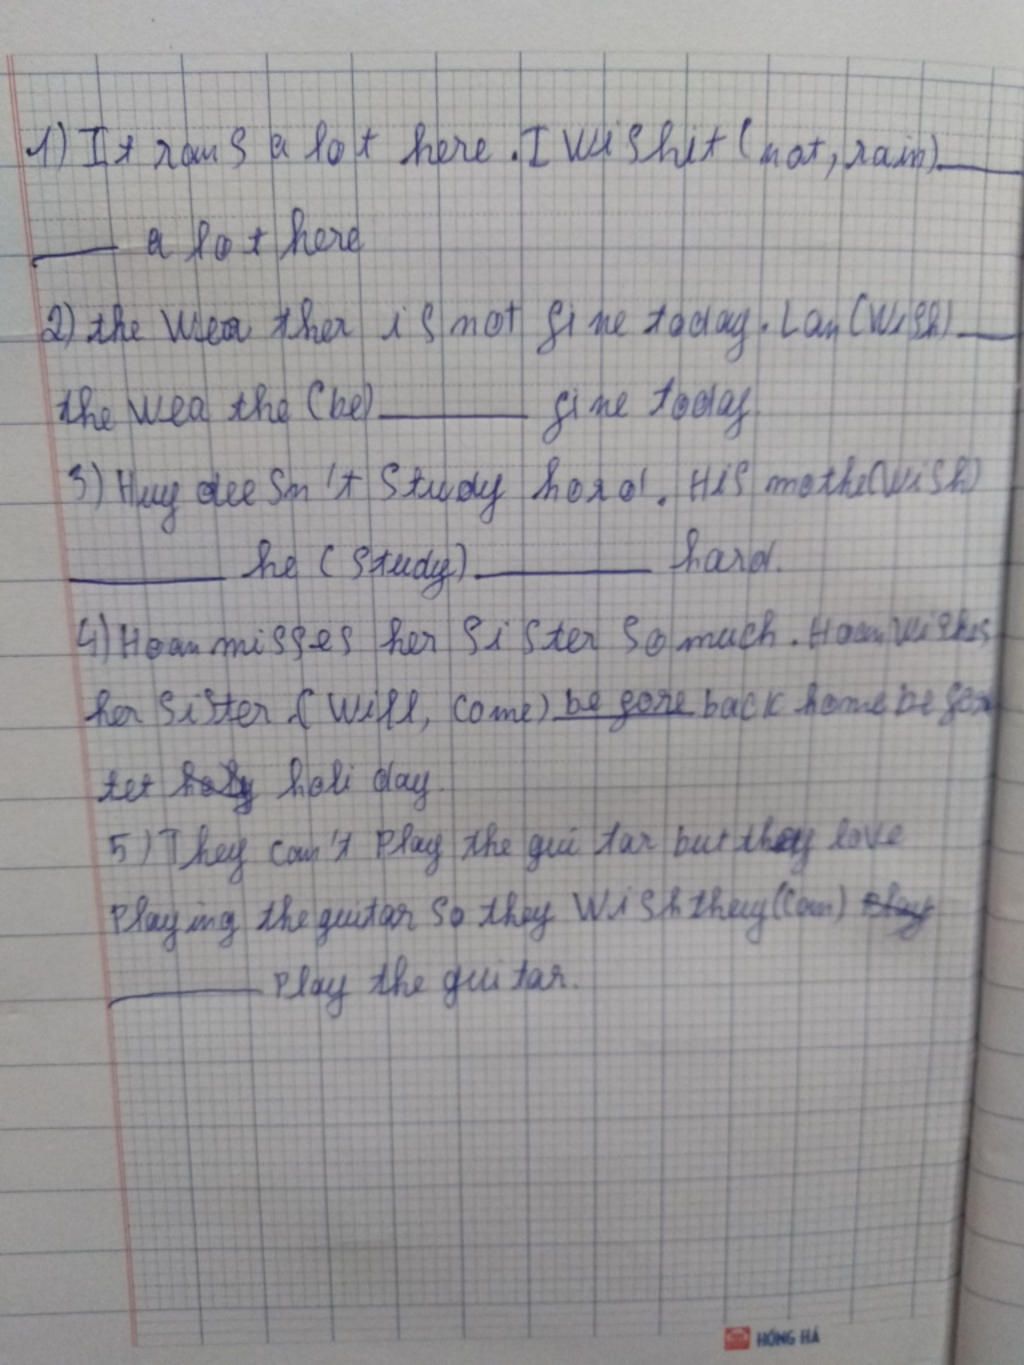 1) It rans a lot here. I wish it (not, rain) ____
____ a lot here
2) the weather is not fine today. Lan (wish) ____
the weathe (be) ____ fine today.
3) Huy deesn't study hard. His mothe (wish)
____ he (study) ____ hard.
4) Hoan misses her sister so much. Hoan wishes
her sister (will, come) before back home before
tet holi day.
5) They can't play the guitar but they love
playing the guitar so they wish they (can) play
____ play the guitar.
HỒNG HÀ